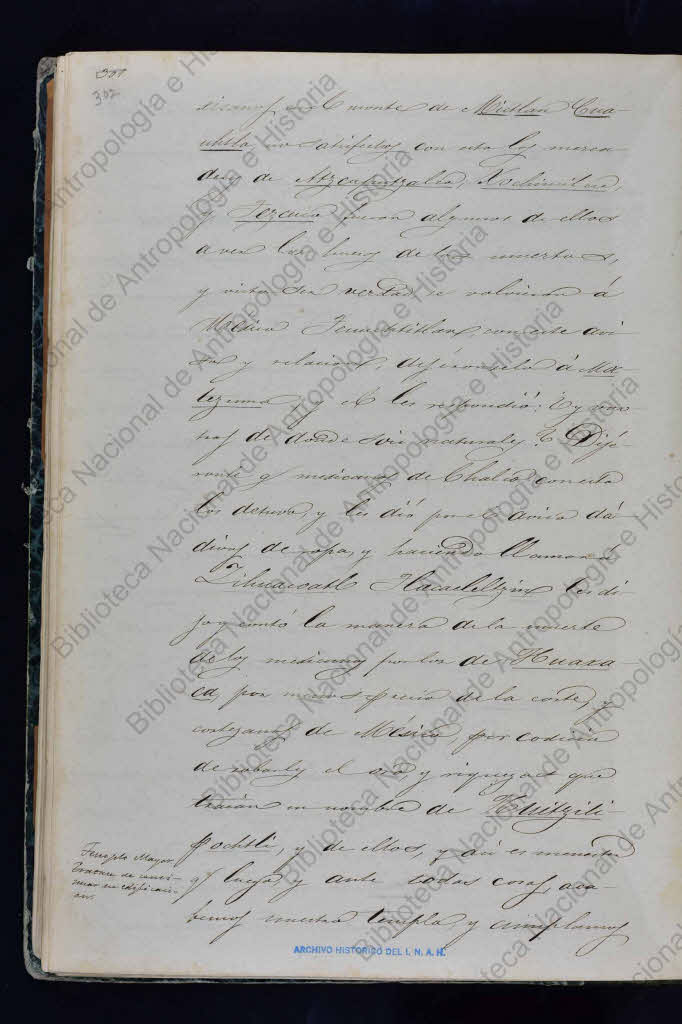 307
302
sicanos en el monte de Mictlan Cua-
uhtla, no satisfechos con esto los merca-
deres de Atzcaputzalco, Xochimilco,
y Tezcuco fueron algunos de ellos
a ver los huesos de los muertos,
y visto ser verdad se volvieron á
México Tenuchtitlan, con este avi-
so y relacion, dijéronselo á Moc-
tezuma y él les respondió:
de donde sois naturales? Dijé-
ronle q mexicanos de Chalco con esto
los detuvo, y les dió por el aviso dá-
divas de ropa, y haciendo llamar á
Zihuacoatl Tlacaeleltzin les di-
jo y contó la manera de la muerte
de los mexicanos por los de Huaxa-
ca, por menosprecio de la corte, y
cortezanos de México, por codicia
de robarles el oro y riquezas que
traían en nombre de Huitzili-
pochtli, y de ellos, y asi es menester
q luego y ante todas cosas, aca-
bemos nuestro templo, y cumplamos
Templo Mayor
tratase de conti-
nuar su edificaci-
on.
ARCHIVO HISTORICO DEL I. N. A. H.
Biblioteca Nacional de Antropología e Historia